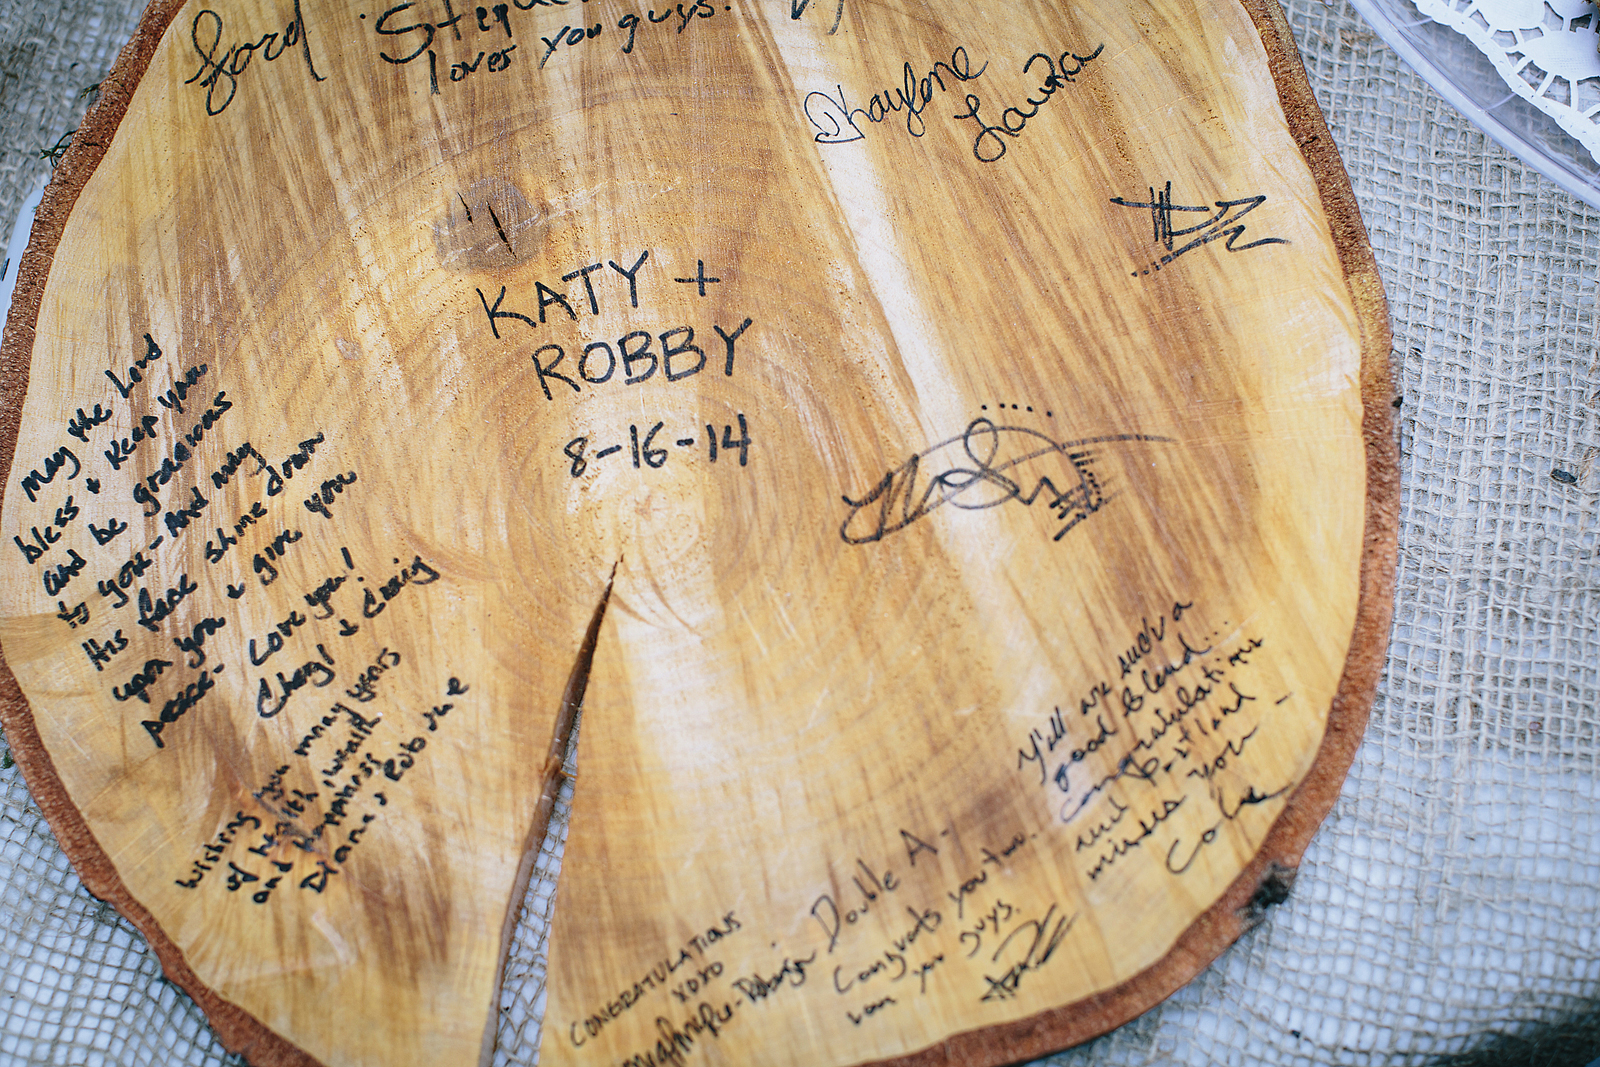 Ford Steph
loves you guys!
Shaylene
Laura
KATY +
ROBBY
8-16-14
May the Lord
bless + keep you
and be gracious
to you - And may
His face shine down
upon you + give you
peace - Love you!
Cheryl + Craig
wishing you many years
of health, wealth
and happiness
Diane & Rob
Y'all are such a
good blend...
congratulations
and Portland
misses you -
Double A -
Congrats you two.
Love you guys.
CONGRATULATIONS
XOXO